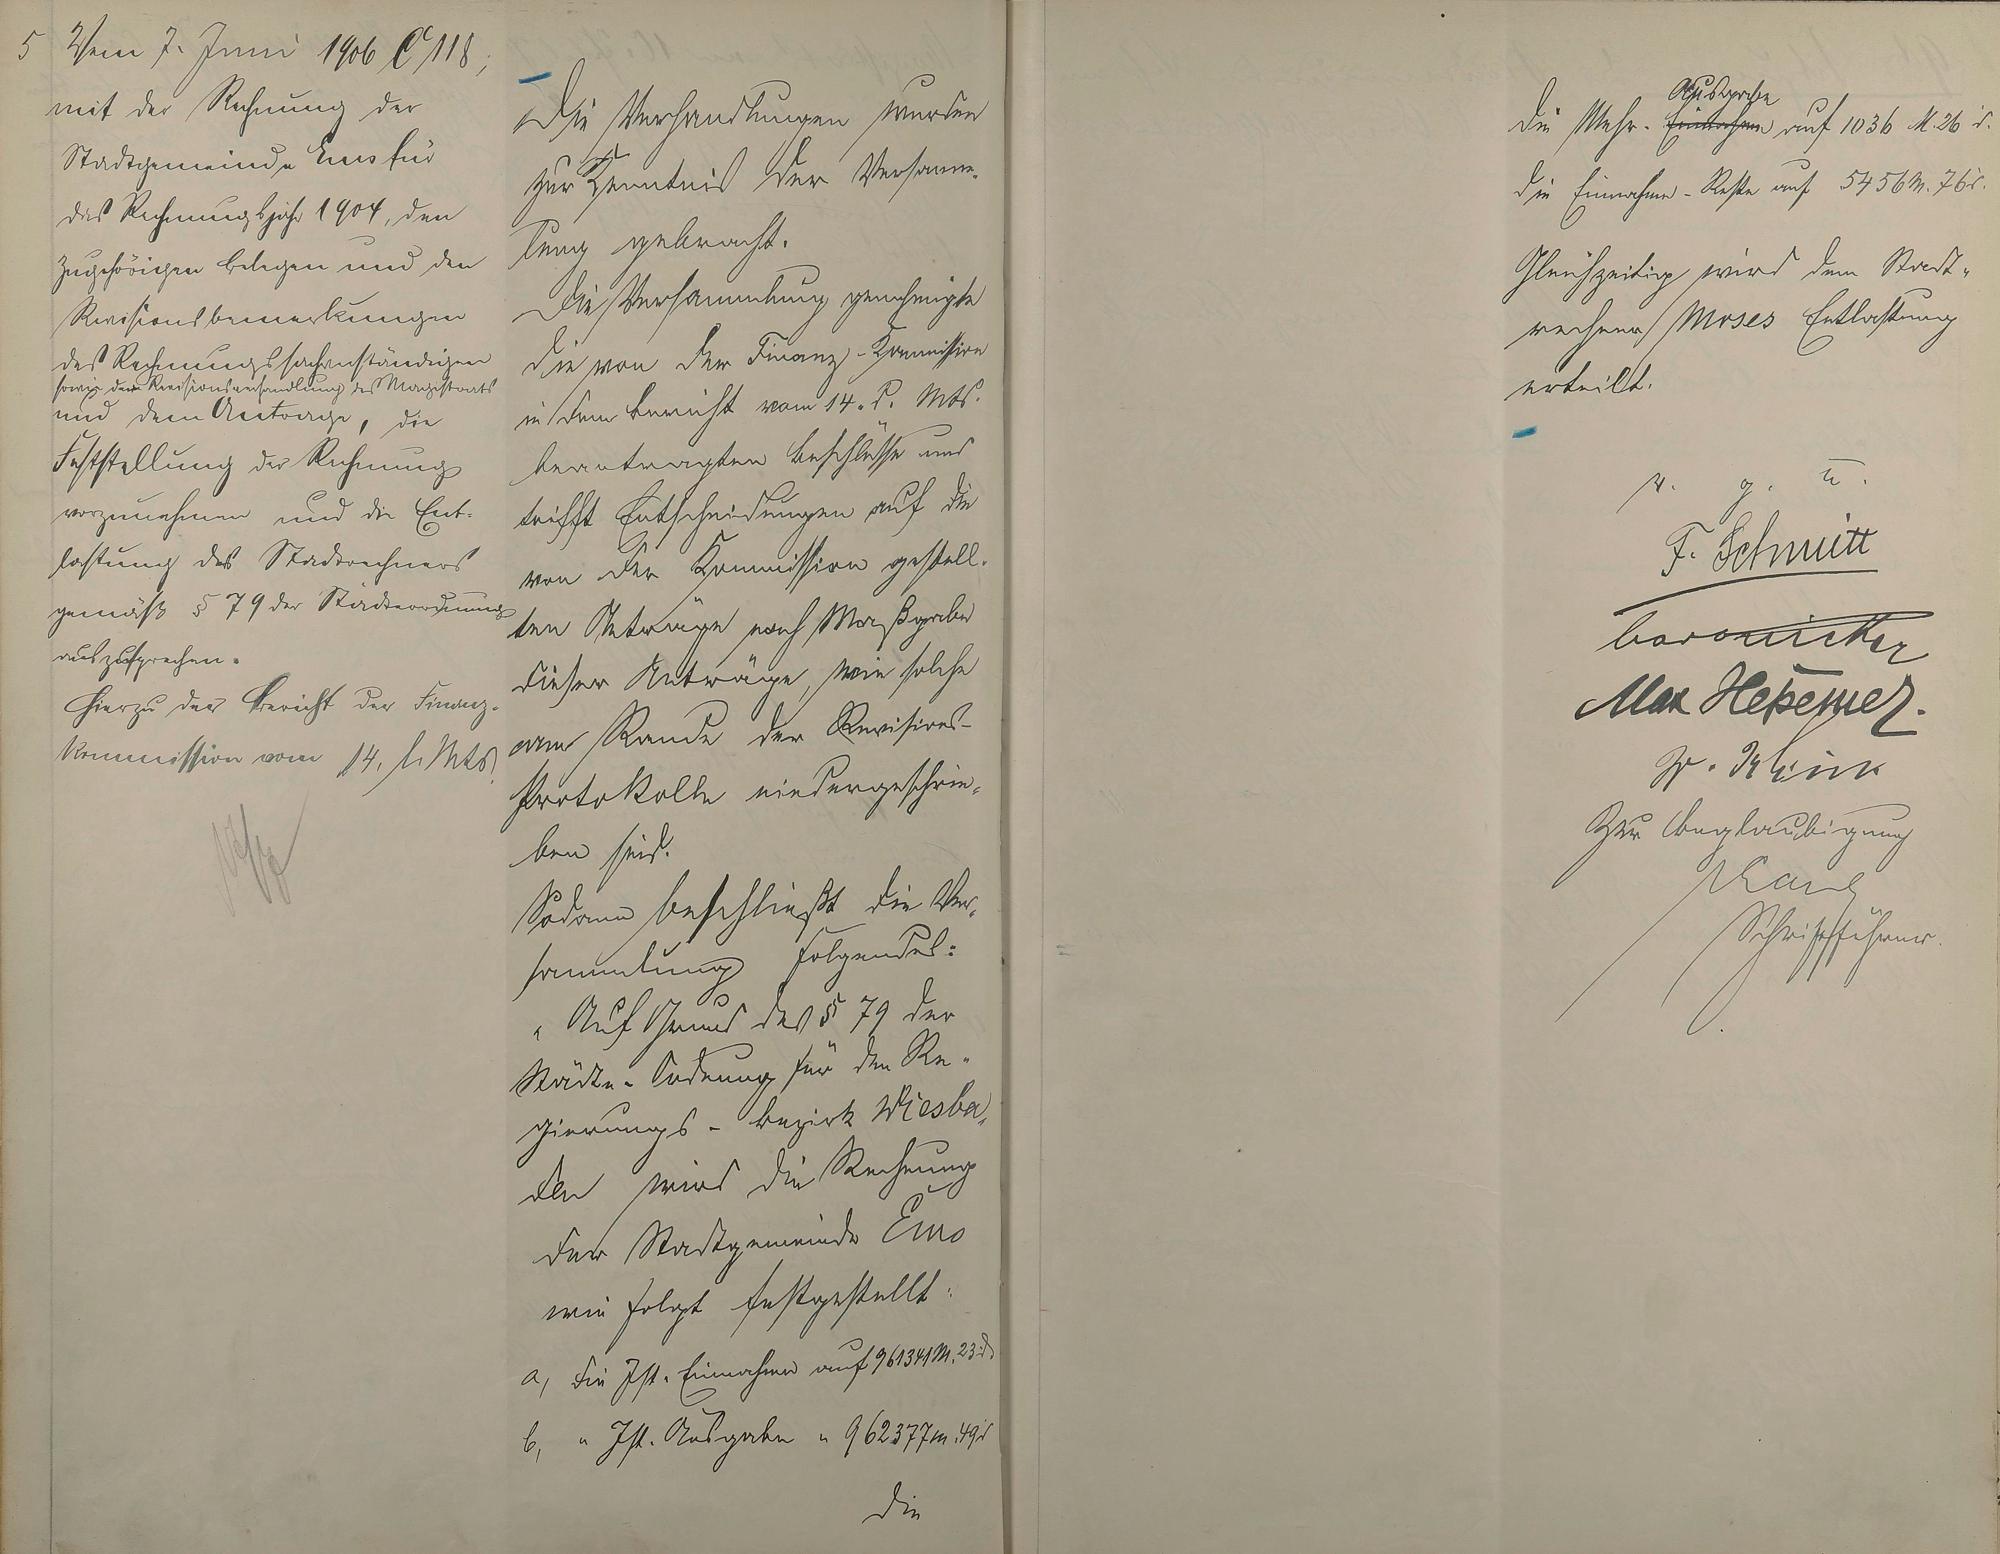 5 Vom 7. Juni 1906 C 118,
mit der Rechnung der
Stadtgemeinde Ems für
das Rechnungsjahr 1904, den
zugehörigen Belegen und den
Revisionsbemerkungen
des Rechnungssachverständigen
sowie der Revisionsverhandlung des Magistrats
und dem Antrage, die
Feststellung der Rechnung
vorzunehmen und die Ent-
lastung des Stadtrechners
gemäß § 79 der Städteordnung
auszusprechen.
Hierzu der Bericht der Finanz-
kommission vom 14. l. Mts.
Die Verhandlungen wurden
zur Kenntnis der Versamm-
lung gebracht.
Die Versammlung genehmigte
die von der Finanz-Kommission
in dem Bericht vom 14. d. Mts.
beantragten Beschlüsse und
trifft Entscheidungen auf die
von der Kommission gestell-
ten Anträge nach Maßgabe
dieser Anträge, wie solche
am Rande der Revisions-
Protokolle niedergeschrie-
ben sind.
Sodann beschließt die Ver-
sammlung Folgendes:
"Auf Grund des § 79 der
Städte-Ordnung für den Re-
gierungs-Bezirk Wiesba-
den wird die Rechnung
der Stadtgemeinde Ems
wie folgt festgestellt:
a, die Ist-Einnahme auf 961341 M. 23 d
b, " Ist-Ausgabe " 962377 M. 49 d
die
Ausgabe
die Mehr-Einnahme auf 1036 M. 26 d.
die Einnahme-Reste auf 5456 M. 76 d.
Gleichzeitig wird dem Stadt-
rechner Moses Entlastung
erteilt.
v. g. u.
F. Schmitt
Max
Zur Beglaubigung
Schriftführer.